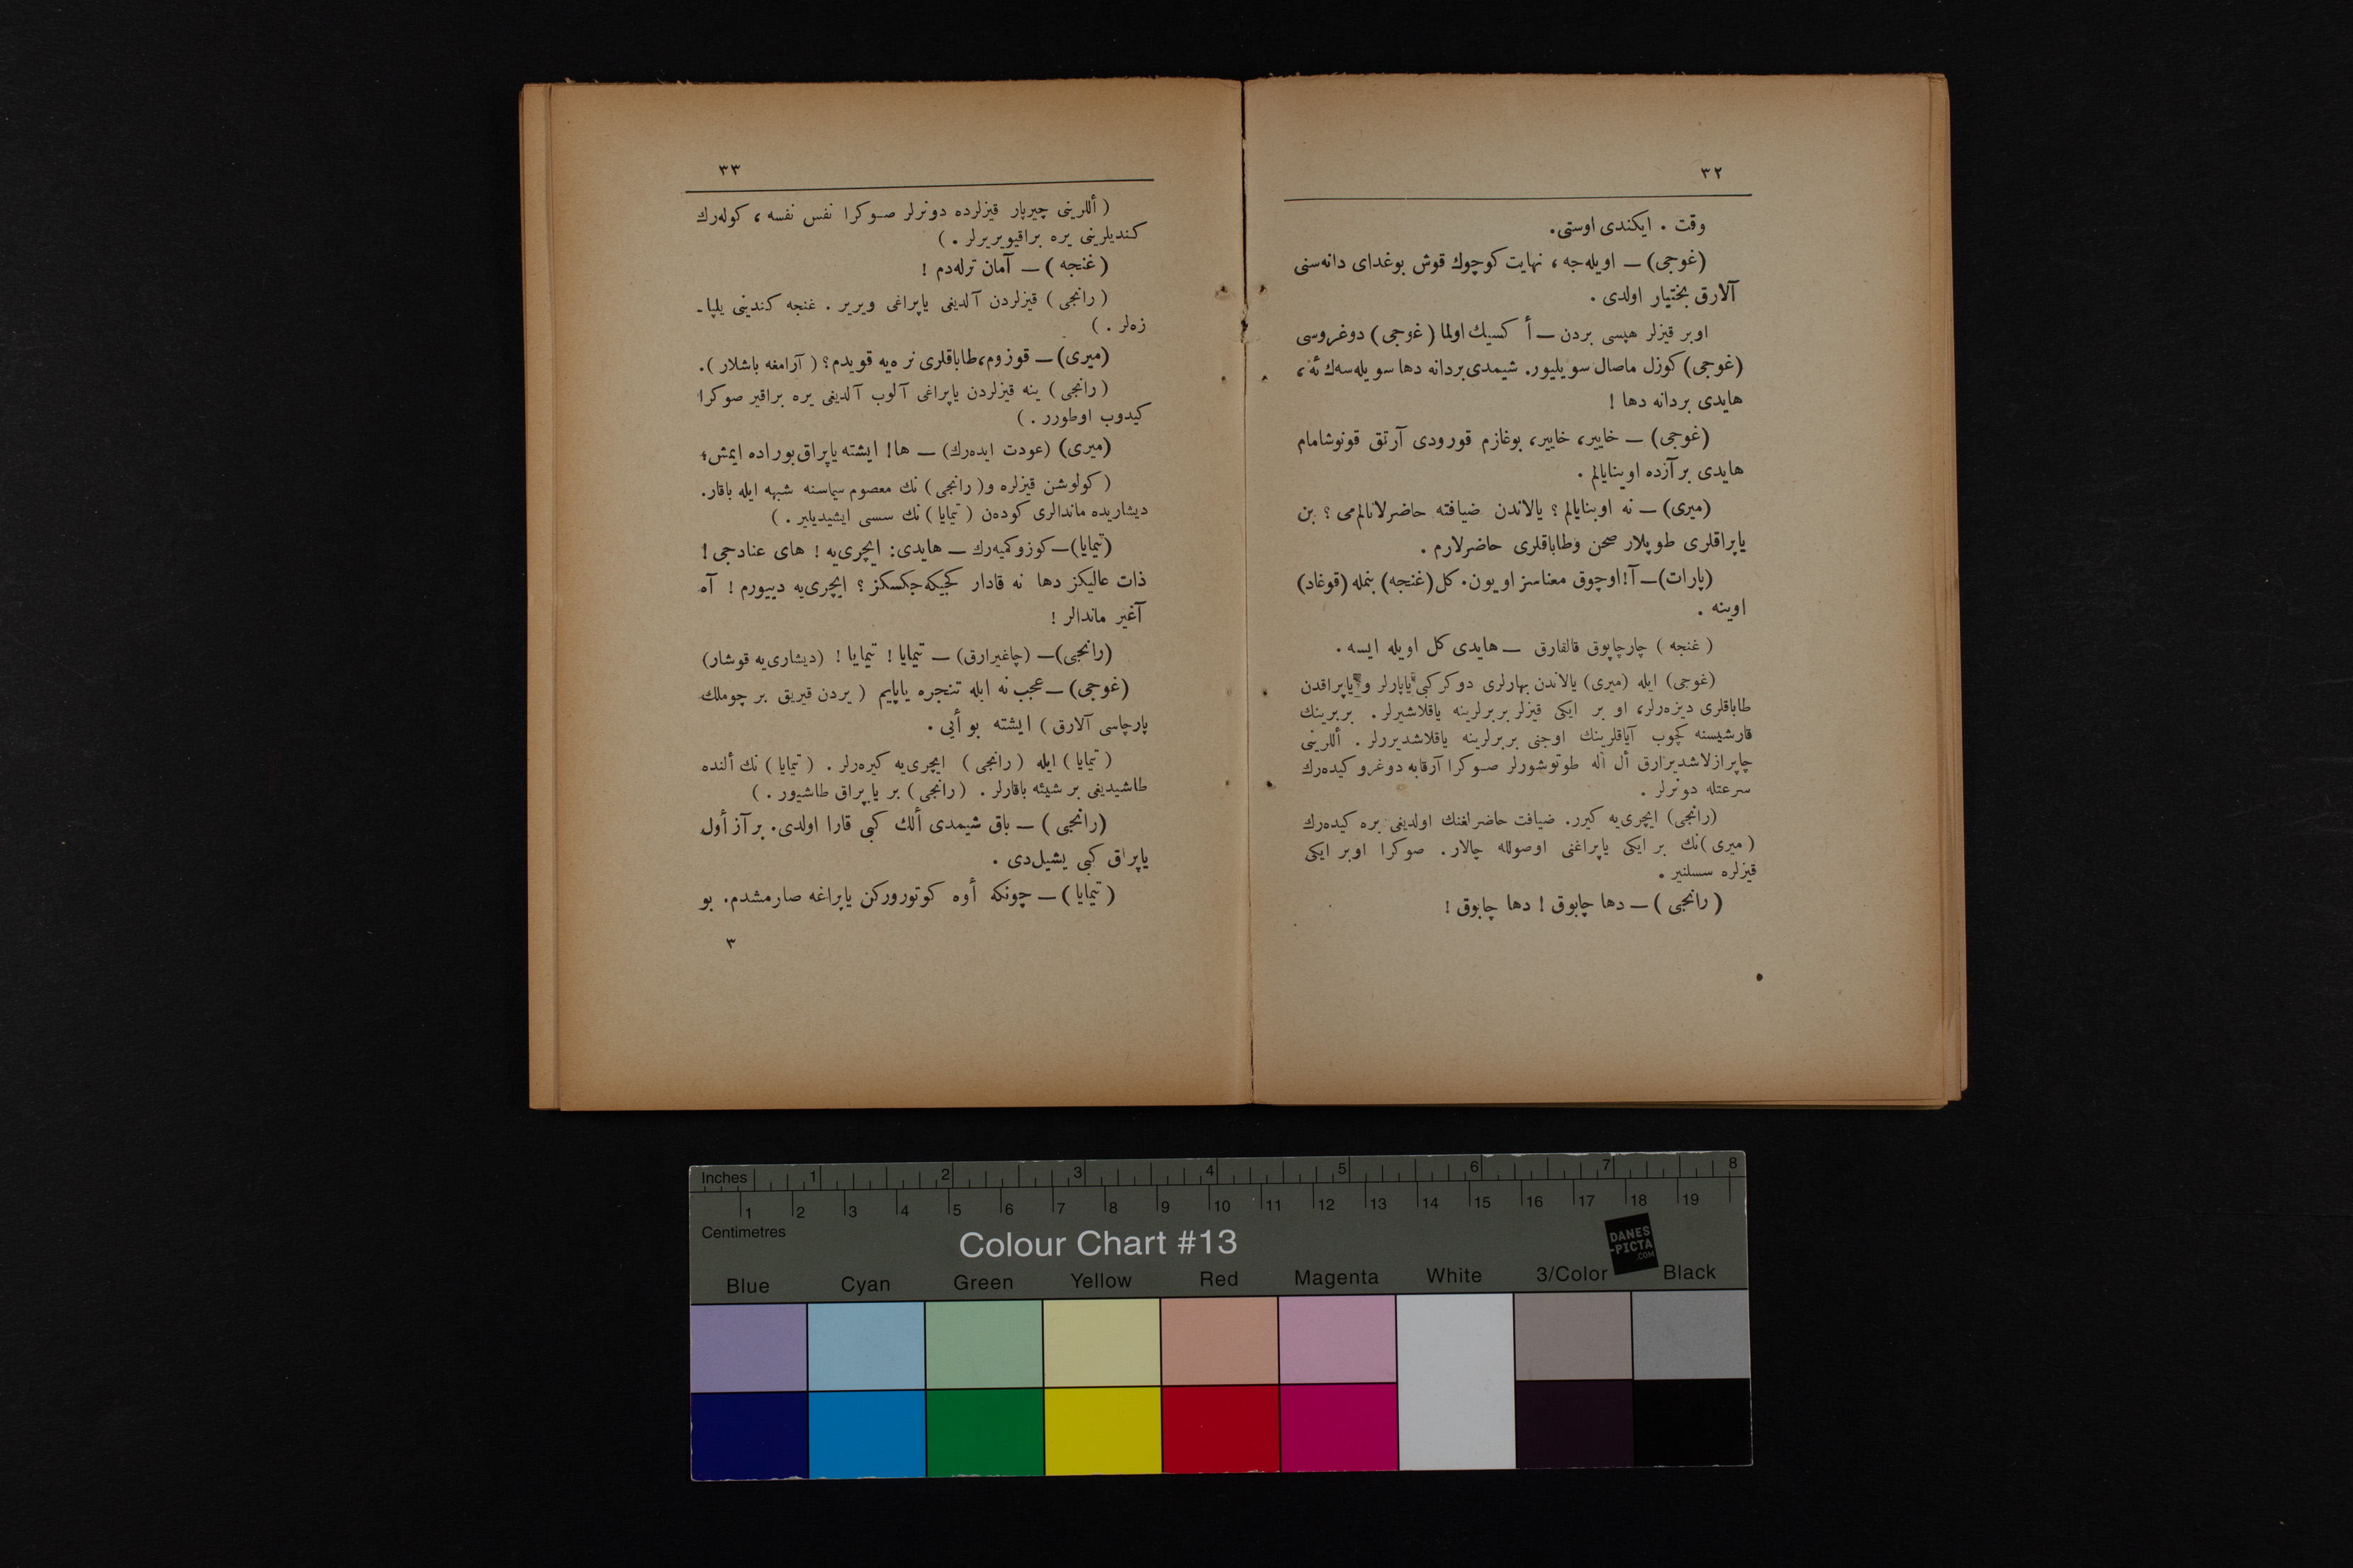 ٣٢
وقت . ایکندی اوستی.
(غوجی) — اویله‌جه ، نهایت کوچوك قوش بوغدای دانه‌سنی
آلارق بختیار اولدی .
اوبر قیزلر هپسی بردن — أ کسیك اولما (غوجی) دوغروسی
(غوجی) کوزل ماصال سویلیور. شیمدی بردانه دها سویله‌سه‌ك ئه ،
هایدی بردانه دها !
(غوجی) — خایير، خایير، بوغازم قورودی آرتق قونوشامام
هایدی برآزده اوینایالم .
(میری) — نه اوینایالم ؟ یالاندن ضیافته حاضرلانالم‌می ؟ بن
یاپراقلری طوپلار صحن وطاباقلری حاضرلارم .
(پارات) — آ! اوچوق معناسز اویون. کل (غنجه) بنمله (قوغاد)
اوینه .
( غنجه ) چارچاپوق قالقارق — هایدی کل اویله ایسه .
(غوجی) ایله (میری) یالاندن بهارلری دوکرکبی یاپارلر و یاپراقدن
طاباقلری دیزه‌رلر، او بر ایکی قیزلر بربرلرینه یاقلاشیرلر . بربرینك
قارشیسنه کچوب آیاقلرینك اوجنی بربرلرینه یاقلاشدیررلر . أللرینی
چاپرازلاشدیرارق أل أله طوتوشورلر صوکرا آرقایه دوغرو کیده‌رك
سرعتله دونرلر .
(رانجی) ایچری‌یه کیرر. ضیافت حاضرلغنك اولدیغی یره کیده‌رك
(میری)نك بر ایکی یاپراغنی اوصولله چالار. صوکرا اوبر ایکی
قیزلره سسلنیر .
(رانجی) — دها چابوق ! دها چابوق !
٣٣
( أللرینی چیرپار قیزلرده دونرلر صوکرا نفس نفسه ، کوله‌رك
کندیلرینی یره براقیویریرلر . )
(غنجه ) — آمان ترله‌دم !
( رانجی ) قیزلردن آلدیغی یاپراغی ویریر . غنجه کندینی یلپا-
زه‌لر . )
(میری) — قوزوم، طاباقلری نره‌یه قویدم؟ ( آرامغه باشلار ).
( رانجی ) ینه قیزلردن یاپراغی آلوب آلدیغی یره براقیر صوکرا
کیدوب اوطورر . )
(میری) (عودت ایده‌رك) — ها! ایشته یاپراق بوراده ایمش؛
( کولوشن قیزلره و( رانجی ) نك معصوم سیماسنه شبهه ایله باقار.
دیشاریده ماندالری کوده‌ن ( تیمایا ) نك سسی ایشیدیلیر . )
(تیمایا) — کوزوکمیه‌رك — هایدی: ایچری‌یه ! های عنادجی !
ذات عالیکز دها نه قادار کجیکه‌جکسکز ؟ ایچری‌یه دییورم ! آه
آغیر ماندالر !
(رانجی) — (چاغیرارق) — تیمایا ! تیمایا ! (دیشاری‌یه قوشار)
(غوجی) — عجب نه ایله تنجره یاپایم ( یردن قیریق بر چوملك
پارچاسی آلارق ) ایشته بو أیی .
( تیمایا ) ایله ( رانجی ) ایچری‌یه کیره‌رلر . ( تیمایا ) نك ألنده
طاشیدیغی بر شیئه باقارلر . ( رانجی ) بر یاپراق طاشیور . )
(رانجی ) — باق شیمدی ألك کبی قارا اولدی. برآز أول
یاپراق کبی یشیل‌دی .
( تیمایا ) — چونکه أوه کوتورورکن یاپراغه صارمشدم. بو
٣
Inches 1 2 3 4 5 6 7 8
1 2 3 4 5 6 7 8 9 10 11 12 13 14 15 16 17 18 19
Centimetres
Colour Chart #13
DANES
-PICTA
.COM
Blue Cyan Green Yellow Red Magenta White 3/Color Black